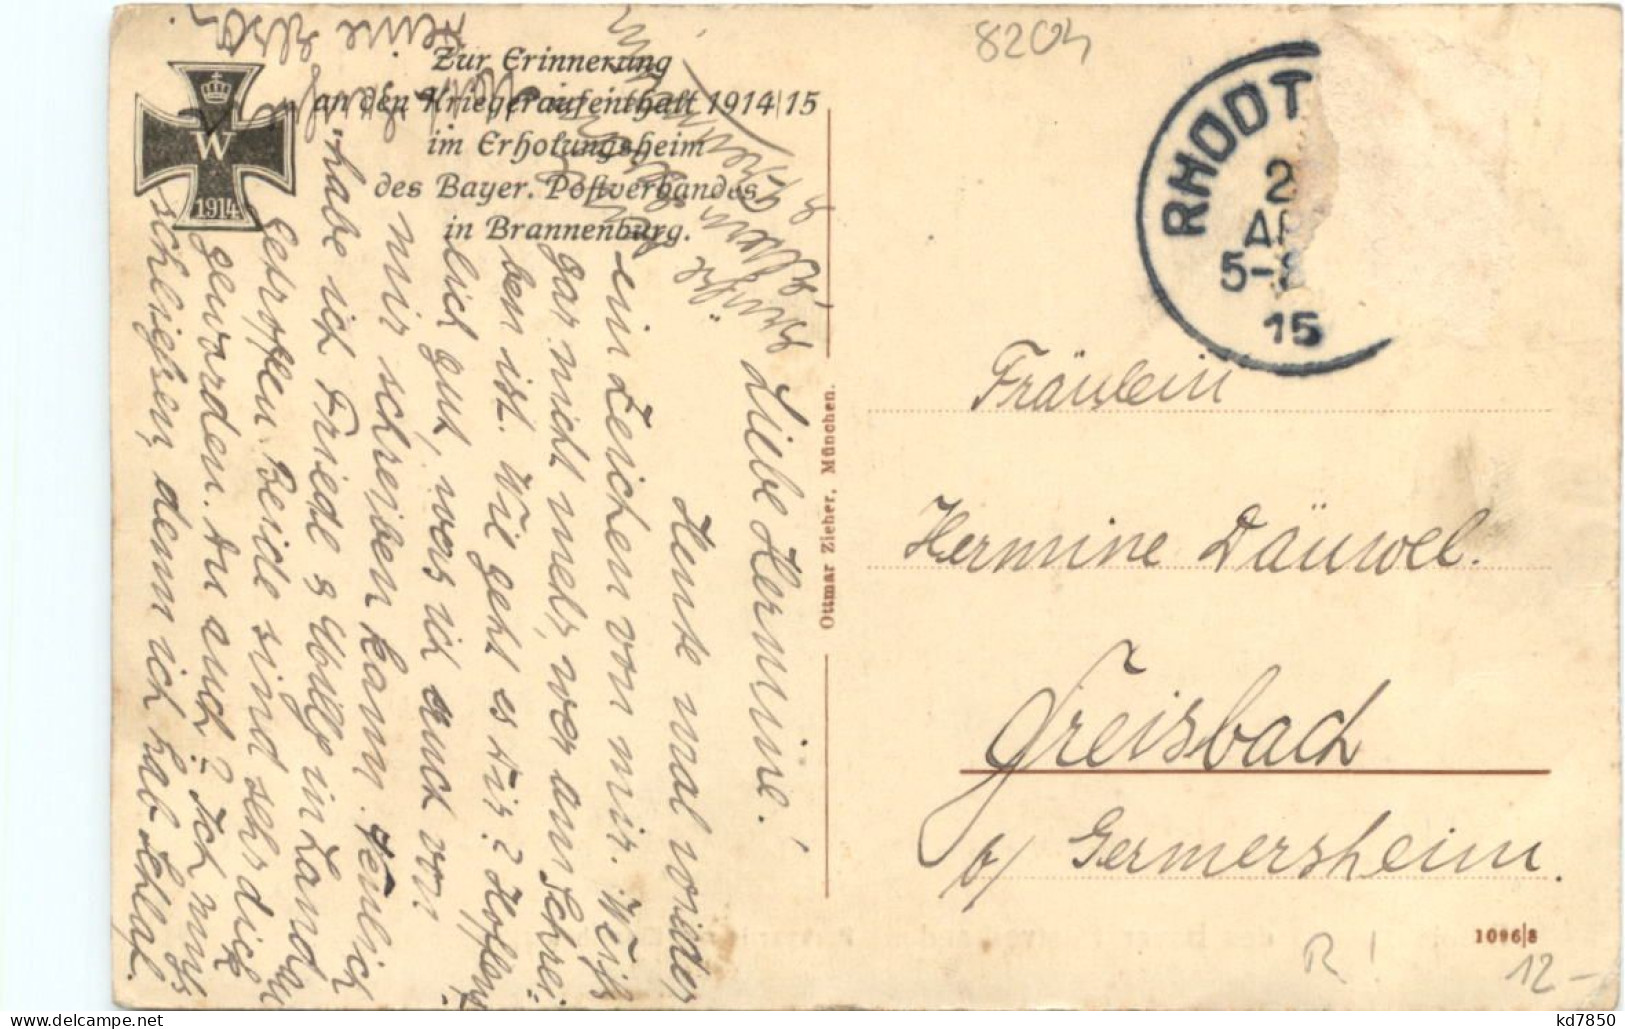 8204
Zur Erinnerung
an den Kriegeraufenthalt 1914/15
im Erholungsheim
des Bayer. Postverbandes
in Brannenburg.
W
1914
RHODT
2
AP
5-8
15
Liebe Hermine!
Heute mal wieder
ein Zeichen von mir. Weiß
gar nicht mehr, wer am Schrei-
ben ist. Wie geht es Dir? Hoffent-
lich gut, was ich auch von
mir schreiben kann. Neulich
habe ich Friede & in Landau
getroffen. Beide sind sehr dick
geworden. Du auch? Ich muß
schließen, denn ich hab
Ottmar Zieher, München.
Fräulein
Hermine Däuwel.
Freisbach
b/ Germersheim.
1096/8
R !
12-
kd7850